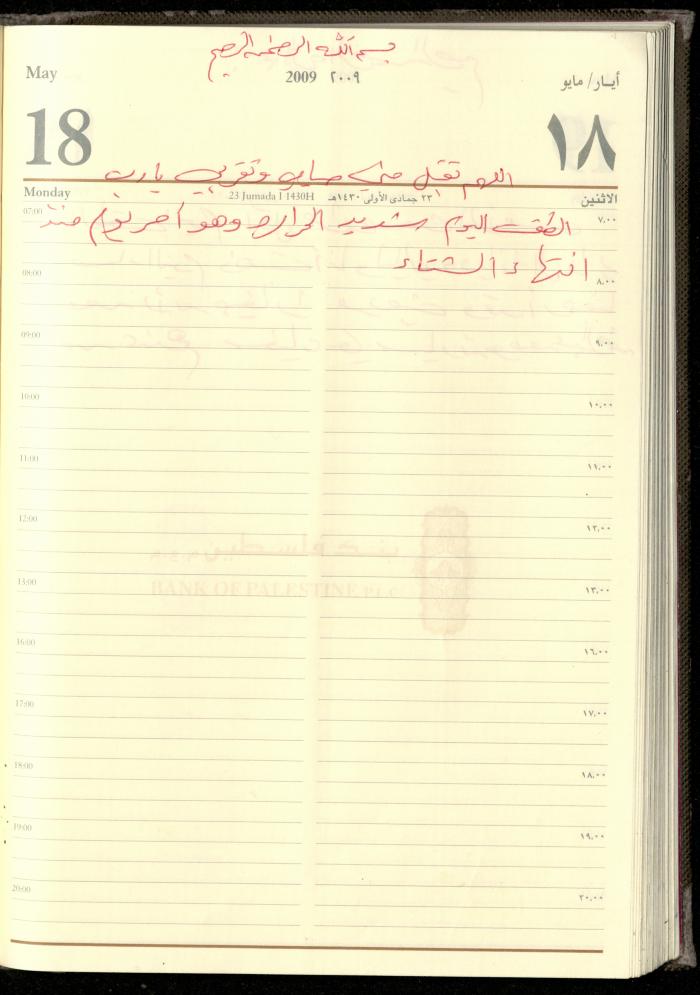 بسم الله الرحمن الرحيم
May
2009 ٢٠٠٩
أيار/ مايو
18
١٨
اللهم تقبل مني صيامي وتقربي يارب
Monday
23 Jumada I 1430H ٢٣ جمادى الأولى ١٤٣٠هـ
الاثنين
07:00 ٧,٠٠
الطقس اليوم شديد الحرارة وهو أحر يوم منذ
انتهاء الشتاء
08:00 ٨,٠٠
09:00 ٩,٠٠
10:00 ١٠,٠٠
11:00 ١١,٠٠
12:00 ١٢,٠٠
BANK OF PALESTINE PLC
13:00 ١٣,٠٠
16:00 ١٦,٠٠
17:00 ١٧,٠٠
18:00 ١٨,٠٠
19:00 ١٩,٠٠
20:00 ٢٠,٠٠